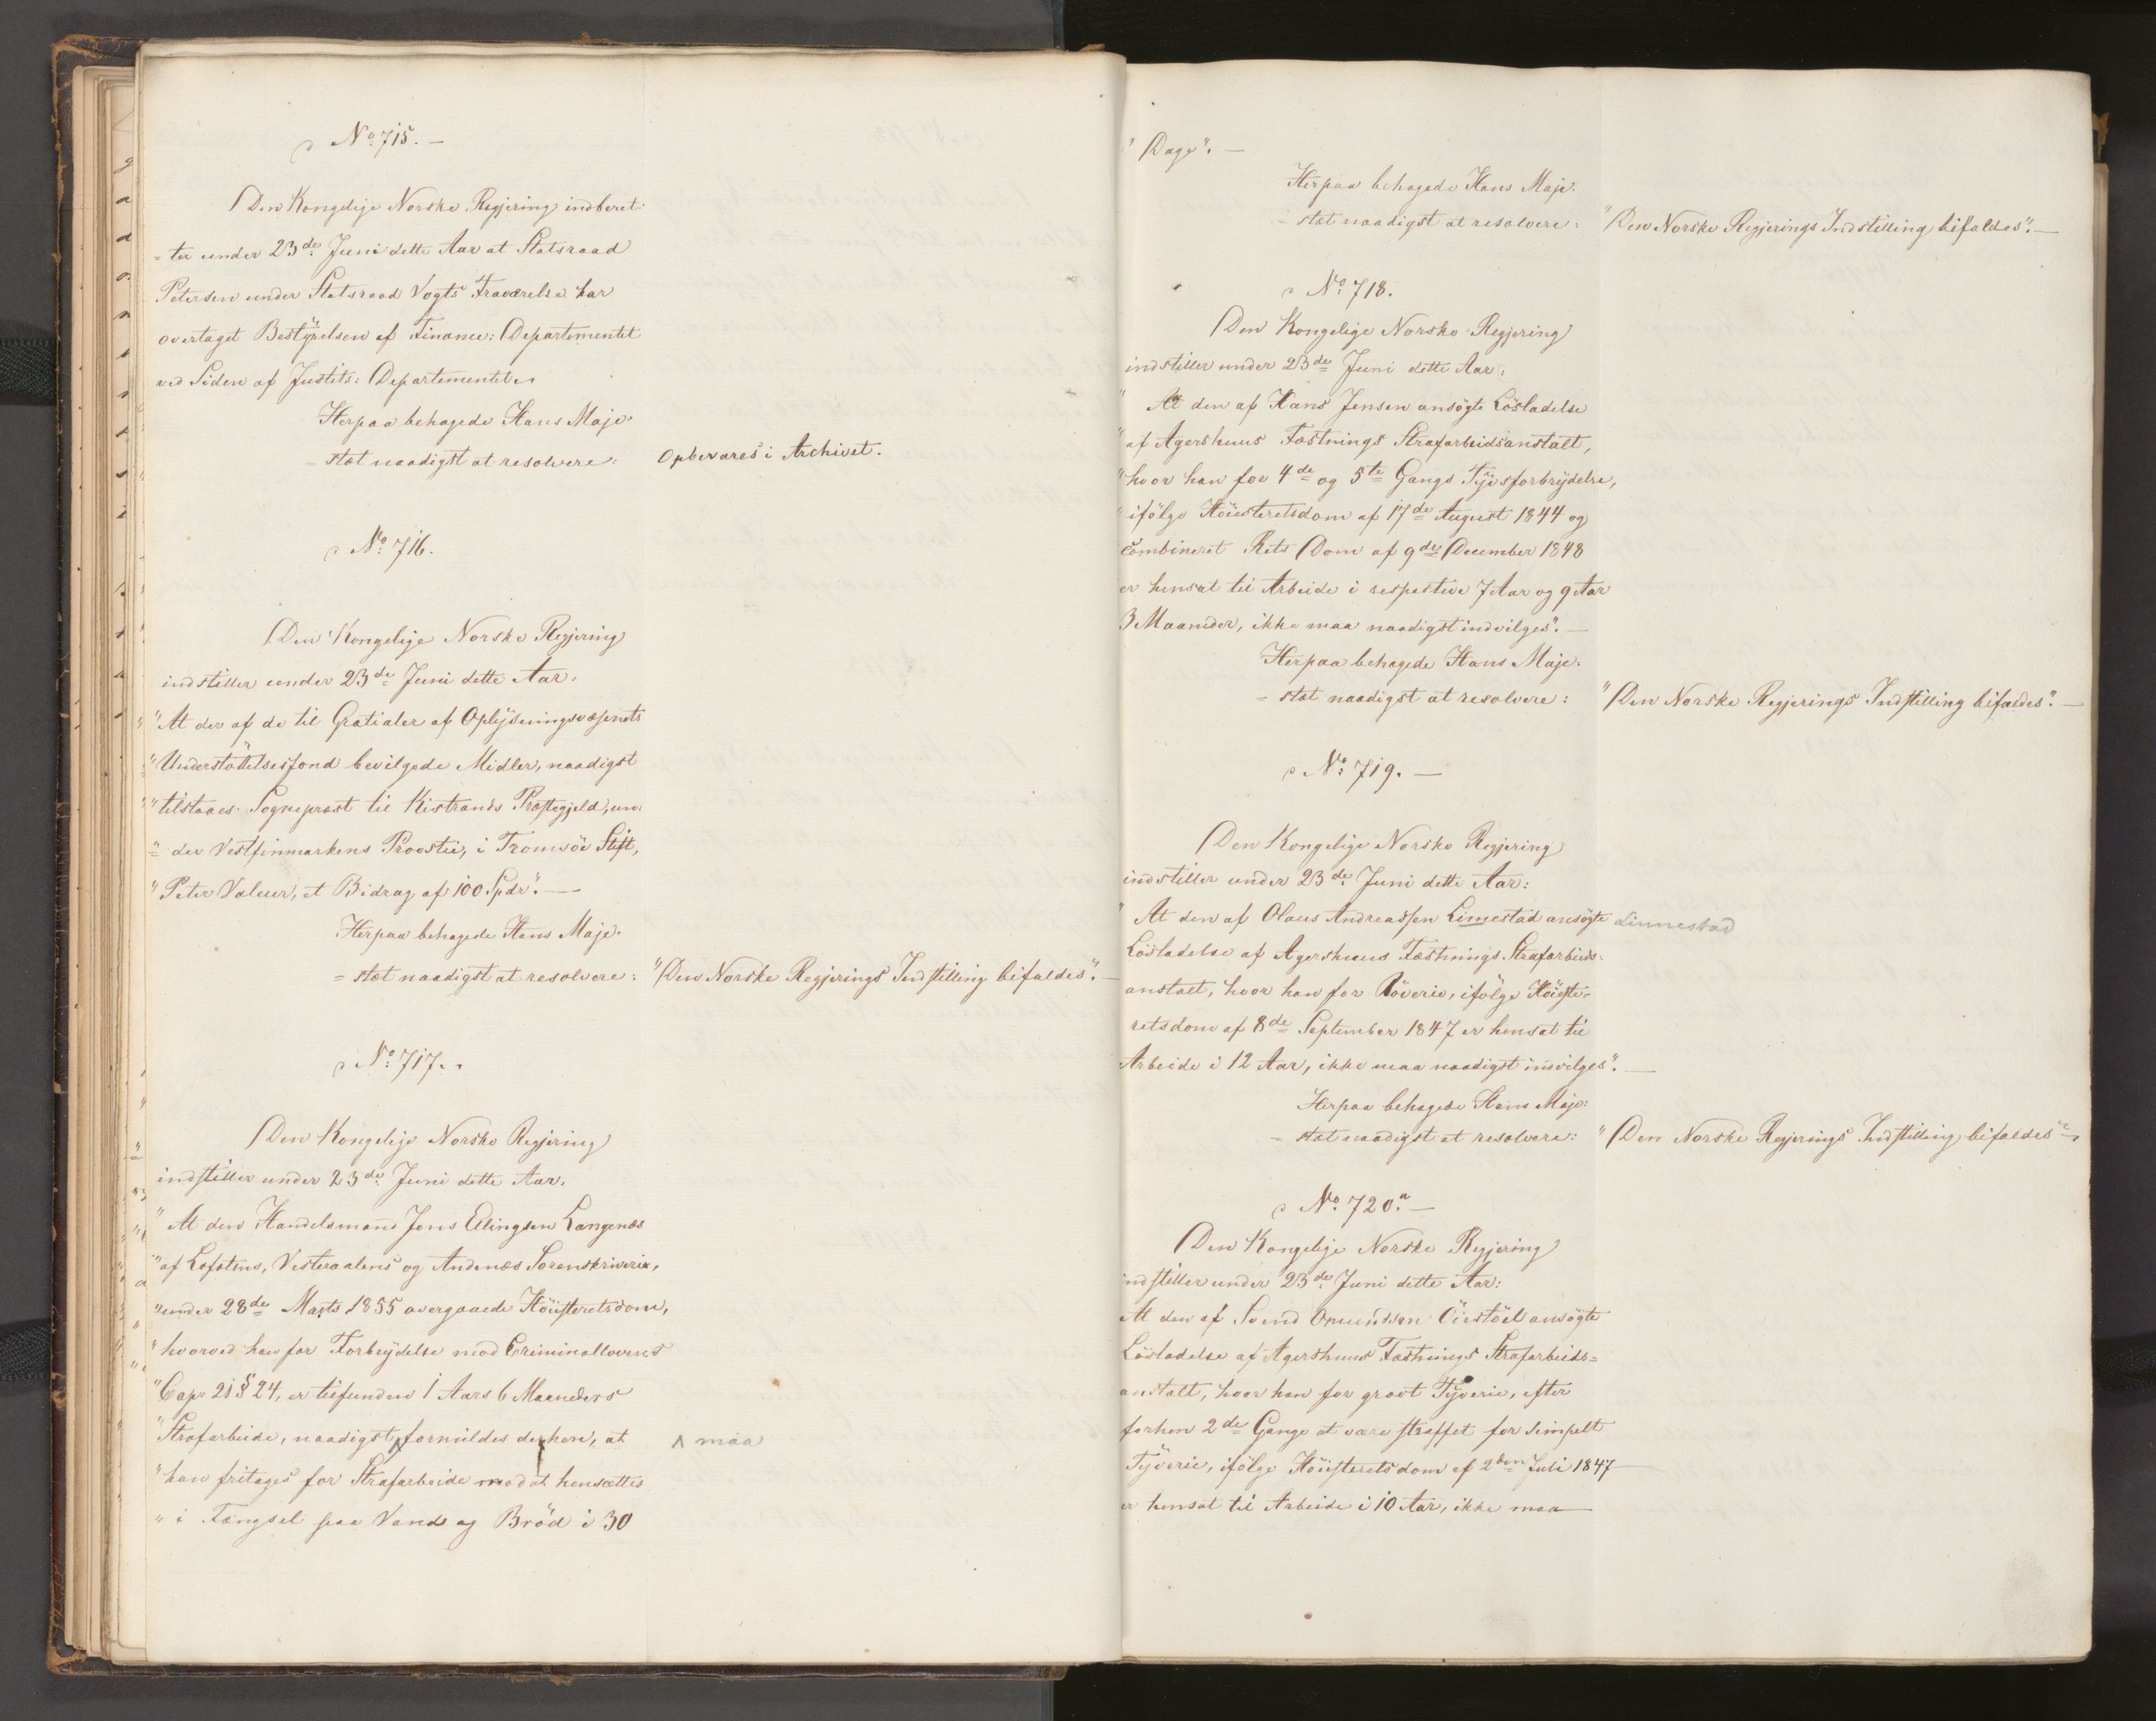 No. 715. —
Den Kongelige Norske Regjering indberet-
=ter under 23de Juni dette Aar at Statsraad
Petersen under Statsraad Vogts Fraværelse har
overtaget Bestyrelsen af Finance: Departementet
ved Siden af Justits: Departementet.
Herpaa behagede Hans Maje-
=stæt naadigst at resolvere: Opbevares i Archivet.
No. 716.
Den Kongelige Norske Regjering
indstiller under 23de Juni dette Aar:
"At der af de til Gratialer af Oplysningsvæsenets
"Understøttelsesfond bevilgede Midler, naadigst
"tilstaaes Sogneprest til Kistrands Præstegjeld, un-
"der Vestfinmarkens Proostie, i Tromsöe Stift,
"Peter Valeur, et Bidrag af 100 Spdr". —
Herpaa behagede Hans Maje-
=stæt naadigst at resolvere: "Den Norske Regjerings Indstilling bifaldes". —
No. 717.
Den Kongelige Norske Regjering
indstiller under 23de Juni dette Aar:
"At den Handelsmand Jens Ellingsen Langenæs
"af Lofotens, Vesteraalens og Andenæs Sorenskriverie,
"under 28de Marts 1855 overgaaede Höiesteretsdom,
"hvorved han for Forbrydelse mod Criminallovens
"Cap. 21 § 24, er tilfunden 1 Aars 6 Maaneders
"Strafarbeide, naadigst ^ formildes derhen, at ^ maa
"han fritages for Strafarbeide mod at hensættes
"i Fængsel paa Vand og Bröd i 30
"Dage". —
Herpaa behagede Hans Maje-
=stæt naadigst at resolvere: "Den Norske Regjerings Indstilling bifaldes". —
No. 718.
Den Kongelige Norske Regjering
indstiller under 23de Juni dette Aar:
"At den af Hans Jensen ansögte Lösladelse
"af Agershuus Fæstnings Strafarbeidsanstalt,
"hvor han for 4de og 5te Gangs Tyvsforbrydelse,
"ifölge Höiesteretsdom af 17de August 1844 og
combineret Rets Dom af 9de December 1848
er hensat til Arbeide i respective 7 Aar og 9 Aar
3 Maaneder, ikke maa naadigst indvilges". —
Herpaa behagede Hans Maje-
=stæt naadigst at resolvere: "Den Norske Regjerings Indstilling bifaldes". —
No. 719. —
Den Kongelige Norske Regjering
indstiller under 23de Juni dette Aar:
"At den af Olaus Andreassen Limestad ansögte Linnestad
Lösladelse af Agershuus Fæstnings Strafarbeids-
anstalt, hvor han for Röverie, ifölge Höieste-
retsdom af 8de September 1847 er hensat til
Arbeide i 12 Aar, ikke maa naadigst indvilges". —
Herpaa behagede Hans Maje-
=stæt naadigst at resolvere: "Den Norske Regjerings Indstilling bifaldes".
No. 720.a —
Den Kongelige Norske Regjering
indstiller under 23de Juni dette Aar:
At den af Svend Omundsen Öiestöel ansögte
Lösladelse af Agershuus Fæstnings Strafarbeids=
anstalt, hvor han for grovt Tyverie, efter
forhen 2de Gange at være straffet for simpelt
Tyverie, ifölge Höiesteretsdom af 2den Juli 1847
er hensat til Arbeide i 10 Aar, ikke maa